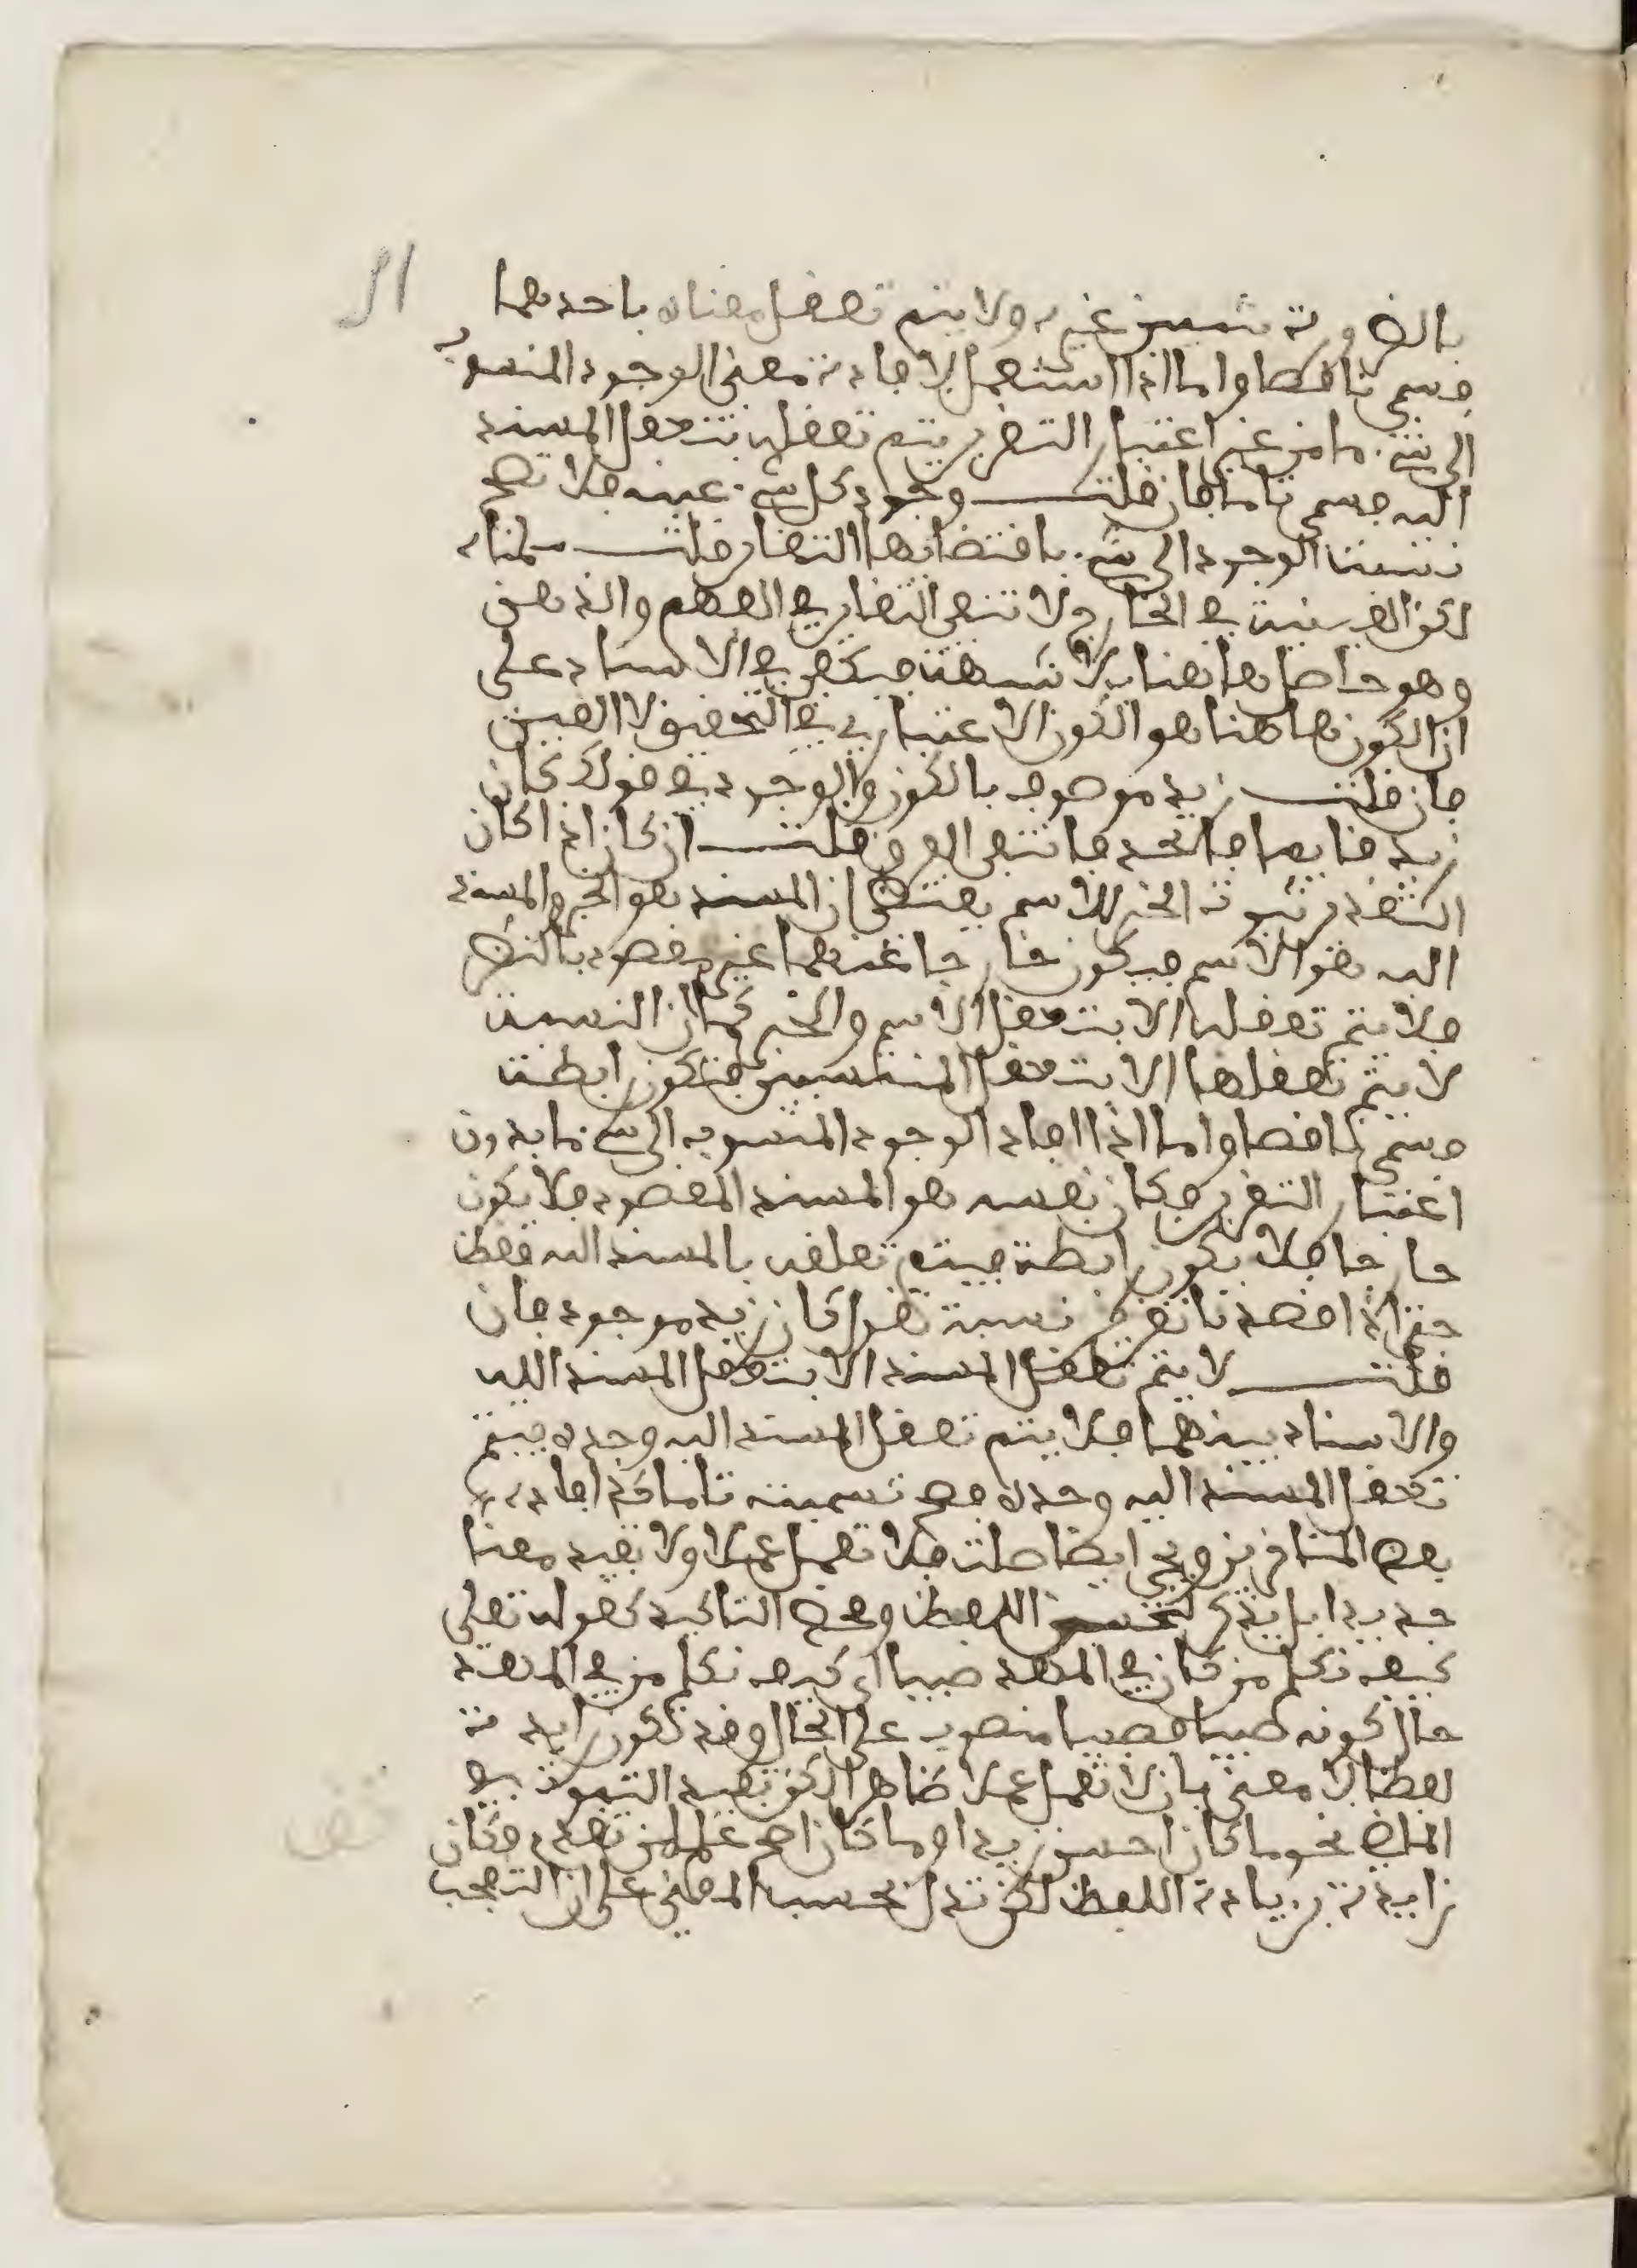 بالضرورة شيين غيره ولا يتم تعقل معناه باحديهما
فسمي ناقصا واما اذا استعمل لافادة معنى الوجود المنسوب
الى شيء ما من غير اعتبار التقرير يتم تعقله بتعقل المسند
اليه فسمي تاما فان قلت وجود كل شيء عينه فلا تصح
نسبة الوجود الى شيء باقتضائها التغاير قلت سلمناه
لكن العينية في الخارج لا تنفي التغاير في الفهم والذهن
وهو حاصل هاهنا بلا شبهة فيكفي في الاسناد على
ان الكون هاهنا هو الكون الاعتباري في التحقيق لا العين
فان قلت زيد موصوف بالكون والوجود في قولك كان
زيد قايما فاتحد فانتفى الفرق قلت ان كان اذا كان
لتقدير ثبوت الخبر للاسم يقتضي ان المسند هو الخبر والمسند
اليه هو الاسم فيكون خارجا عنهما غير مقصود بالنظر
فلا يتم تعقله الا بتعقل الاسم والخبر كما ان النسبة
لا يتم تعقلها الا بتعقل المنتسبين فتكون رابطة
فسمي ناقصا واما اذا افاد الوجود المنسوب الى شيء ما بدون
اعتبار التقرير فكان نفسه هو المسند المقصود فلا يكون
خارجا فلا يكون رابطة فيتم تعلقه بالمسند اليه فقط
حتى اذا قصدنا تقرير نسبة نقول كان زيد موجود فان
قلت لا يتم تعقل المسند الا بتعقل المسند اليه
والاسناد بينهما فلا يتم تعقل المسند اليه وحده فيتم
تعقل المسند اليه وحده فصح تسميته تاما قد افاده
بعض المتاخرين ويجي ايضا صلة فلا تعمل عملا ولا تفيد معنا
جديدا بل يذكر لتحسين اللفظ ومحض التاكيد كقوله تعلى
كيف نكلم من كان في المهد صبيا اي كيف نكلم من في المهد
حال كونه صبيا فصبيا منصوب على الحال وقد تكون زايدة
لفظا لا معنى بان لا تعمل عملا ظاهرا لكن تفيد الثبوت في
الماض نحو ما كان احسن زيدا وما كان اصح علم من تقدم فكان
زايدة بزيادة اللفظ لكن تدل بحسب المعنى على ان التعجب